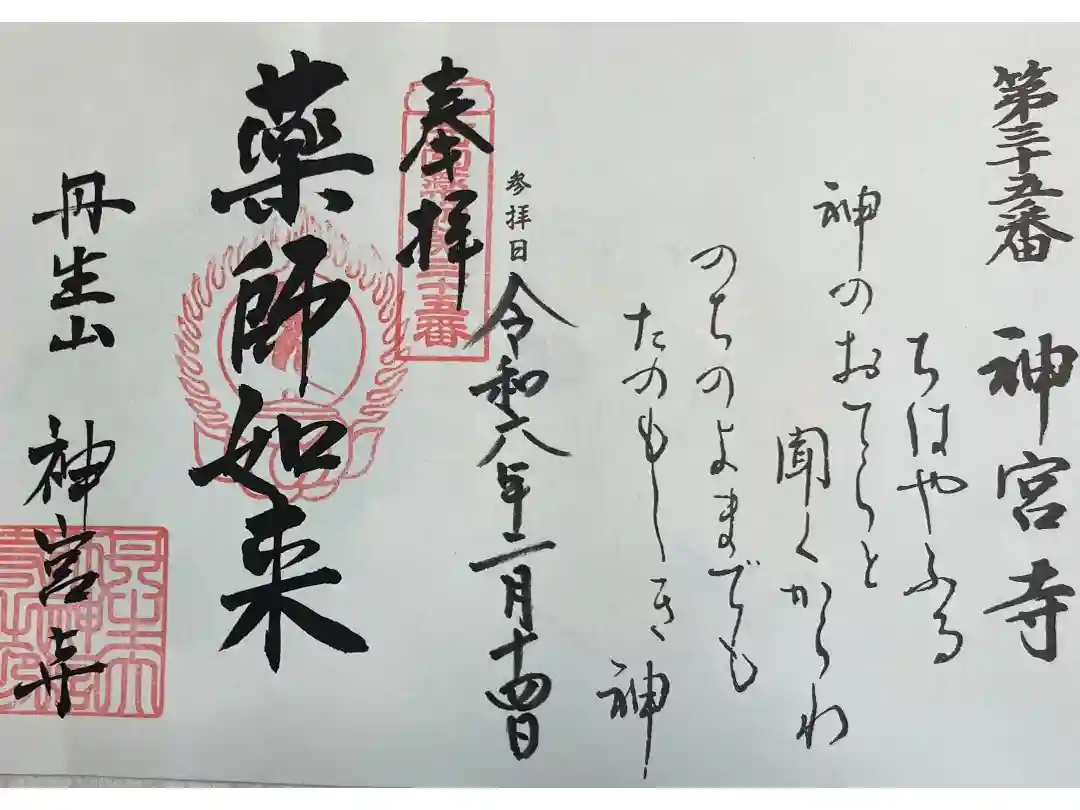 第三十五番 神宮寺
ちはやふる
神のおてらと
聞くからわ
のちのよまでも
たのもしき神
参拝日 令和六年二月十四日
奉拝
薬師如来
丹生山 神宮寺